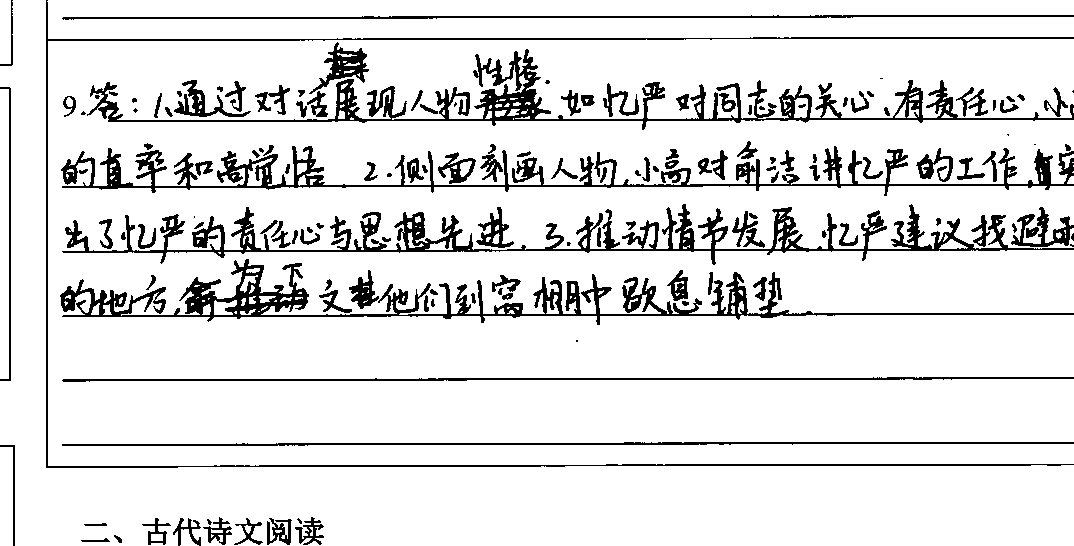 9.答：1.通过对话展现人物性格.如忆严对同志的关心、有责任心,小
的直率和高觉悟.2.侧面刻画人物,小高对俞洁讲忆严的工作,
出了忆严的责任心与思想先进.3.推动情节发展.忆严建议找避
的地方,为下文他们到窝棚中歇息铺垫.
二、古代诗文阅读